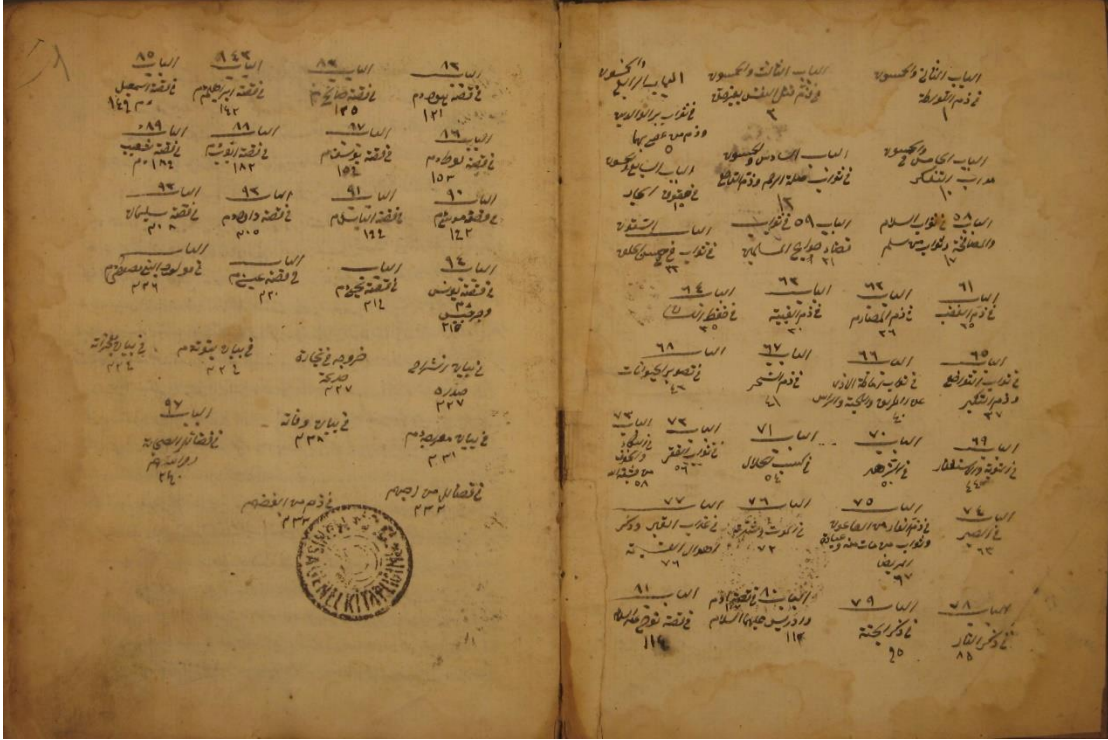 الباب الثاني والخمسون
في ذم اللوطة
١
الباب الثالث والخمسون
في ذم قتل النفس بغير حق
٣
الباب الرابع والخمسون
في ثواب بر الوالدين
وذم من عصى بهما
٥
الباب الخامس والخمسون في
التفكر
١٠
الباب السادس والخمسون
في ثواب صلة الرحم وذم القاطع
١٢
الباب السابع والخمسون
في حقوق الجار
١٥
الباب ٥٨ في ثواب السلام
والمصافحة وثواب من سلم
١٧
الباب ٥٩ في ثواب
قضاء حوائج المسلمين
٢١
الباب الستون
في ثواب حسن الخلق
٢٢
الباب ٦١
في ذم الغضب
٢٥
الباب ٦٢
في ذم
٢٦
الباب ٦٣
في ذم الغيبة
٣٠
الباب ٦٤
في حفظ اللسان
٣٥
الباب ٦٥
في ثواب التواضع
وذم التكبر
٣٧
الباب ٦٦
في ثواب اماطة الاذى
عن الطريق
٤٠
الباب ٦٧
في ذم السحر
٤١
الباب ٦٨
في تصوير الحيوانات
٤٦
الباب ٦٩
في التوبة والاستغفار
٤٤
الباب ٧٠
في الزهد
٥٠
الباب ٧١
في كسب الحلال
٥٤
الباب ٧٢
في ثواب الفقر
٥٦
الباب ٧٣
في البكاء
والخوف
٥٨
الباب ٧٤
في الصبر
٦٣
الباب ٧٥
في ذم الفرار من الطاعون
وثواب من مات منه وعيادة
المريض
٦٧
الباب ٧٦
في الموت وشدته
٧٢
الباب ٧٧
في عذاب القبر وذكر
اهوال القيمة
٧٦
الباب ٧٨
في ذكر النار
٨٥
الباب ٧٩
في ذكر الجنة
٩٥
الباب ٨٠ في قصة ادم
وادريس عليهما السلام
١١٢
الباب ٨١
في قصة نوح عليه السلام
١١٤
٨٣
الباب
في قصة هود م
١٢١
الباب
في قصة صالح م
١٢٥
الباب
في قصة ابراهيم م
١٤٢
٨٥
الباب
في قصة اسمعيل
م ١٤٩
٨٦
الباب
في قصة لوط م
١٥٢
٨٧
الباب
في قصة يوسف م
١٥٤
٨٨
الباب
في قصة ايوب م
١٨٢
٨٩
الباب
في قصة شعيب
م ١٨٤
٩٠
الباب
في قصة موسى م
٩١
الباب
في قصة الياس م
١٩٩
الباب
في قصة داود م
٢٠٥
٩٣
الباب
في قصة سليمان
٢٠٨
٩٤
الباب
في قصة يونس
وجرجيس
٢١٥
الباب
في قصة يحيى م
٢١٤
الباب
في قصة عيسى م
٢٢٠
الباب
في مولد النبي مصطفى م
٢٢٦
في بيان انشراح
صدره
٢٢٧
خروجه في تجارة
خديجة
٢٢٧
في بيان نبوته م
في بيان معجزاته
في بيان معراجه م
٢٣١
في بيان وفاته
٢٣٨
الباب ٩٧
في فضائل الصحابة
٢٤٠
في فضائل من احبهم
٢٣٢
في ذم من ابغضهم
٢٣٢
MANİSA GENEL KİTAPLIĞI